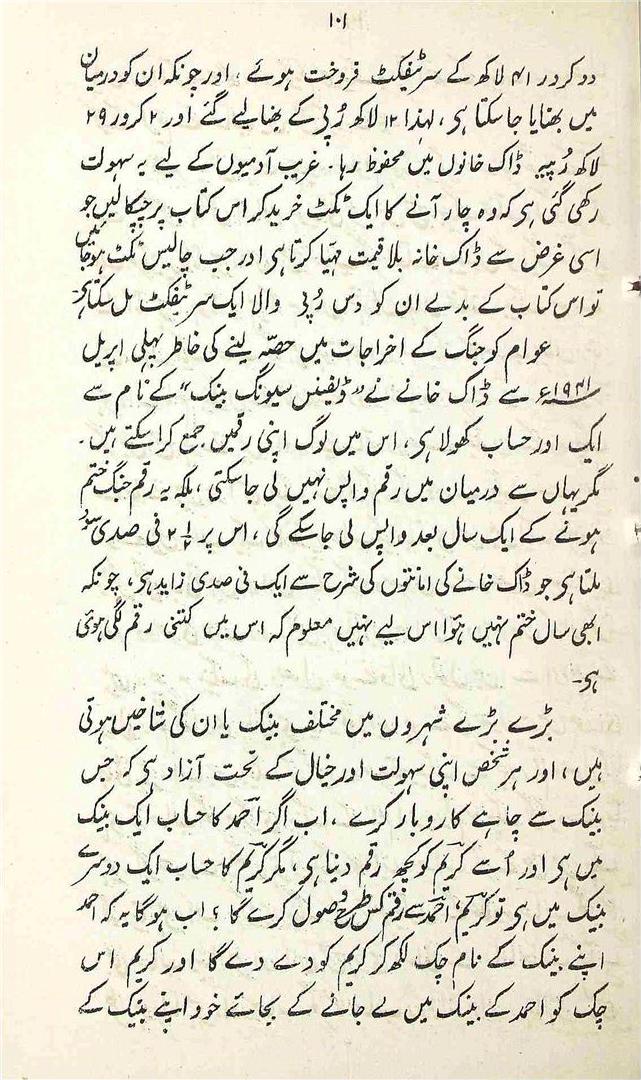 ۱۰۱
دو کرور ۴۱ لاکھ کے سرٹیفکٹ فروخت ہوئے ، اور چونکہ ان کو درمیان
میں بھنایا جا سکتا ہی ، لہٰذا ۱۲ لاکھ رُپی کے بھنا لیے گئے اور ۲ کرور ۲۹
لاکھ رُپیہ ڈاک خانوں میں محفوظ رہا ۔ غریب آدمیوں کے لیے یہ سہولت
رکھی گئی ہی کہ وہ چار آنے کا ایک ٹکٹ خرید کر اس کتاب پر چپکا لیں جو
اسی غرض سے ڈاک خانہ بلا قیمت مہیّا کرتا ہی اور جب چالیس ٹکٹ ہو جائیں
تو اس کتاب کے بدلے ان کو دس رُپی والا ایک سرٹیفکٹ مل سکتا ہی۔
عوام کو جنگ کے اخراجات میں حصّہ لینے کی خاطر پہلی اپریل
۱۹۴۱ء سے ڈاک خانے نے "ڈیفنس سیونگ بینک" کے نام سے
ایک اور حساب کھولا ہی ، اس میں لوگ اپنی رقمیں جمع کرا سکتے ہیں ۔
مگر یہاں سے درمیان میں رقم واپس نہیں لی جا سکتی ، بلکہ یہ رقم جنگ ختم
ہونے کے ایک سال بعد واپس لی جا سکے گی ، اس پر ۲½ فی صدی سود
ملتا ہی جو ڈاک خانے کی امانتوں کی شرح سے ایک فی صدی زاید ہی ، چونکہ
ابھی سال ختم نہیں ہؤا اس لیے نہیں معلوم کہ اس میں کتنی رقم لگی ہوئی
ہی۔
بڑے بڑے شہروں میں مختلف بینک یا ان کی شاخیں ہوتی
ہیں ، اور ہر شخص اپنی سہولت اور خیال کے تحت آزاد ہی کہ جس
بینک سے چاہے کاروبار کرے ، اب اگر احمد کا حساب ایک بینک
میں ہی اور اُسے کریم کو کچھ رقم دینا ہی ، مگر کریم کا حساب ایک دوسرے
بینک میں ہی تو کریم ، احمد سے رقم کس طرح وصول کرے گا ؟ اب ہوگا یہ کہ احمد
اپنے بینک کے نام چک لکھ کر کریم کو دے دے گا اور کریم اس
چک کو احمد کے بینک میں لے جانے کے بجائے خود اپنے بینک کے